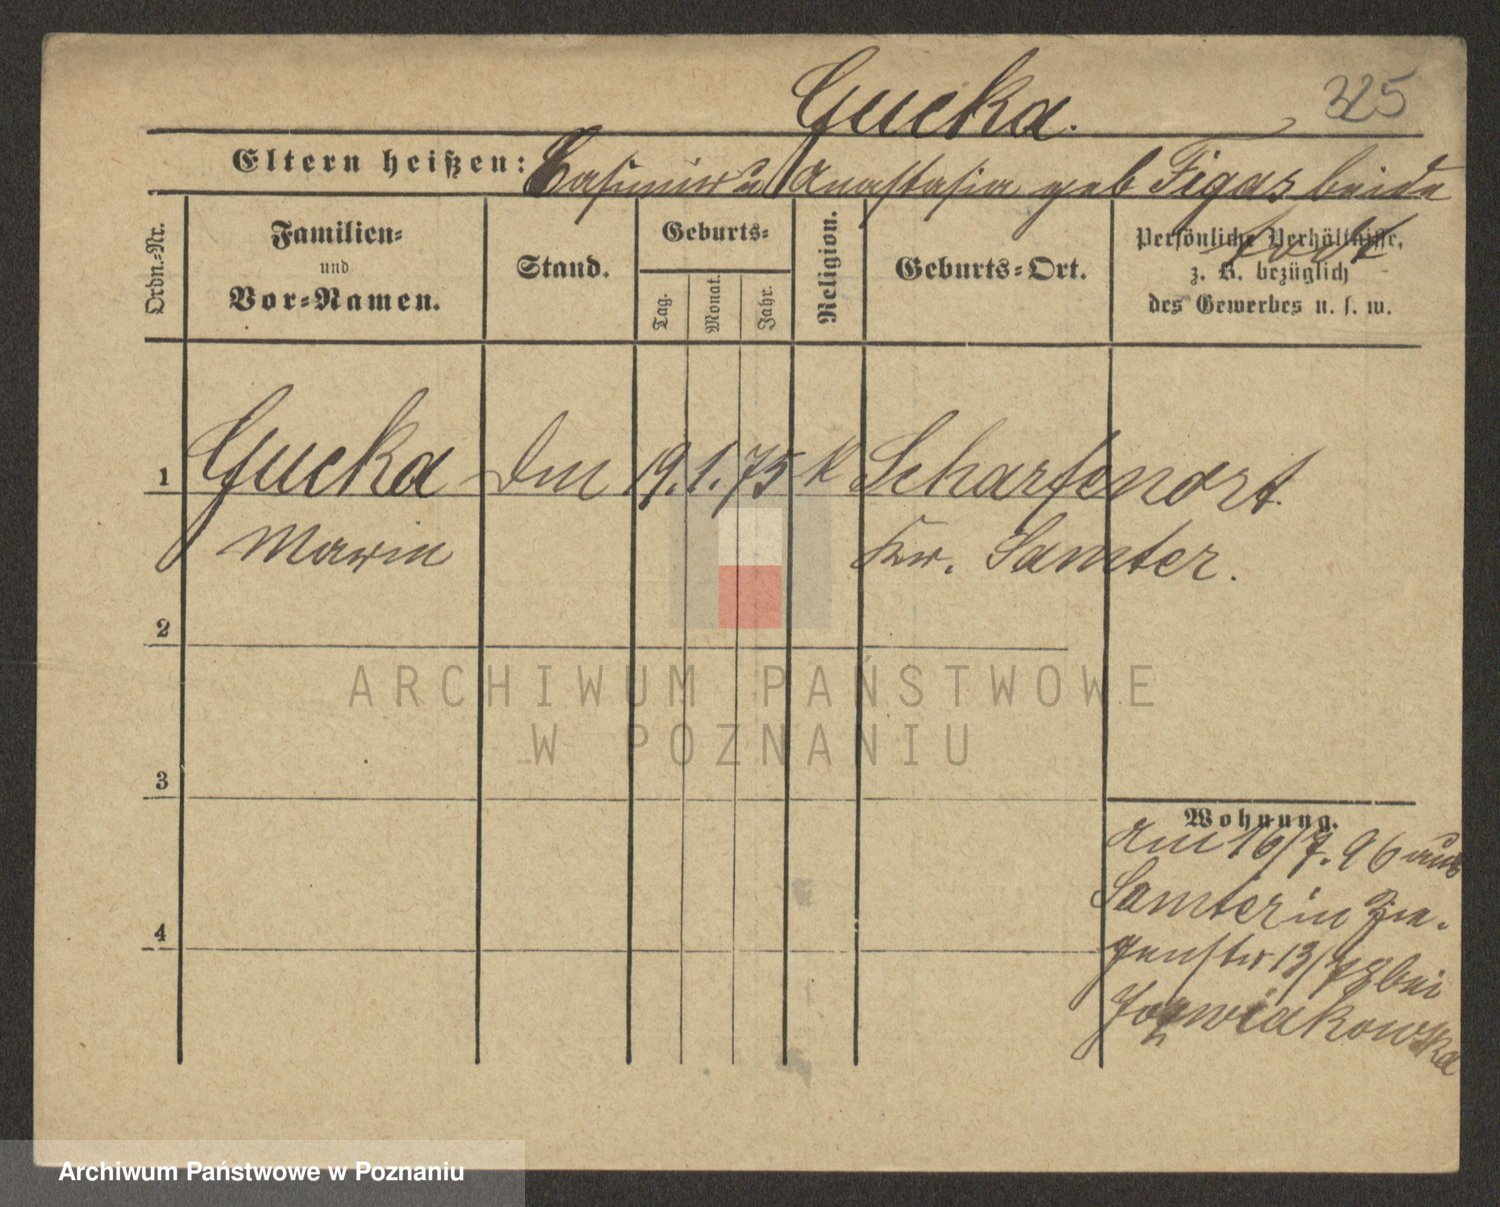 325
Gucka.
Eltern heißen: Casimir u Anastasia geb Figas beide
todt
Ordn.-Nr.
Familien-
und
Vor-Namen.
Stand.
Geburts-
Tag.
Monat.
Jahr.
Religion.
Geburts-Ort.
Persönliche Verhältnisse,
z. B. bezüglich
des Gewerbes u. s. w.
1 Gucka 19. 1. 75 k Scharfenort.
Marie Kr. Samter.
2
3
4
Wohnung.
Am 16/7. 96 aus
Samter in Zie-
genstr 13/ bei
Jozwiakowska
ARCHIWUM PAŃSTWOWE
W POZNANIU
Archiwum Państwowe w Poznaniu